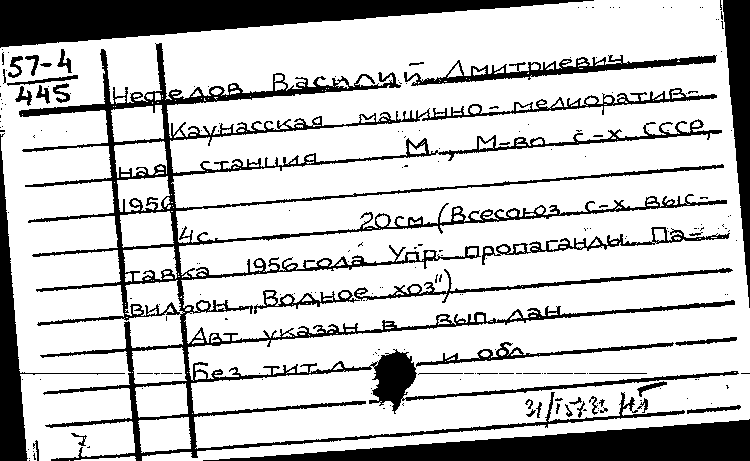 57-4
445
Нефедов Василий Дмитриевич
Каунасская машинно-мелиоратив-
ная станция М., М-во с-х. СССР,
1956
4с. 20см. (Всесоюз. с-х. выс-
тавка 1956 года Упр. пропаганды. Па-
вильон „Водное хоз")
Авт. указан в вып. дан.
Без тит. л. и обл.
7